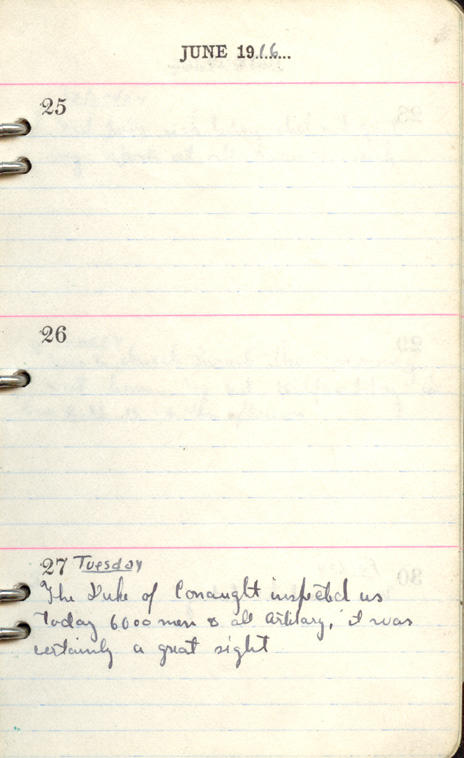 JUNE 1916...
25
26
27 Tuesday
The Duke of Conaught inspected us
Today 6000 men & all Artilary, it was
certainly a great sight